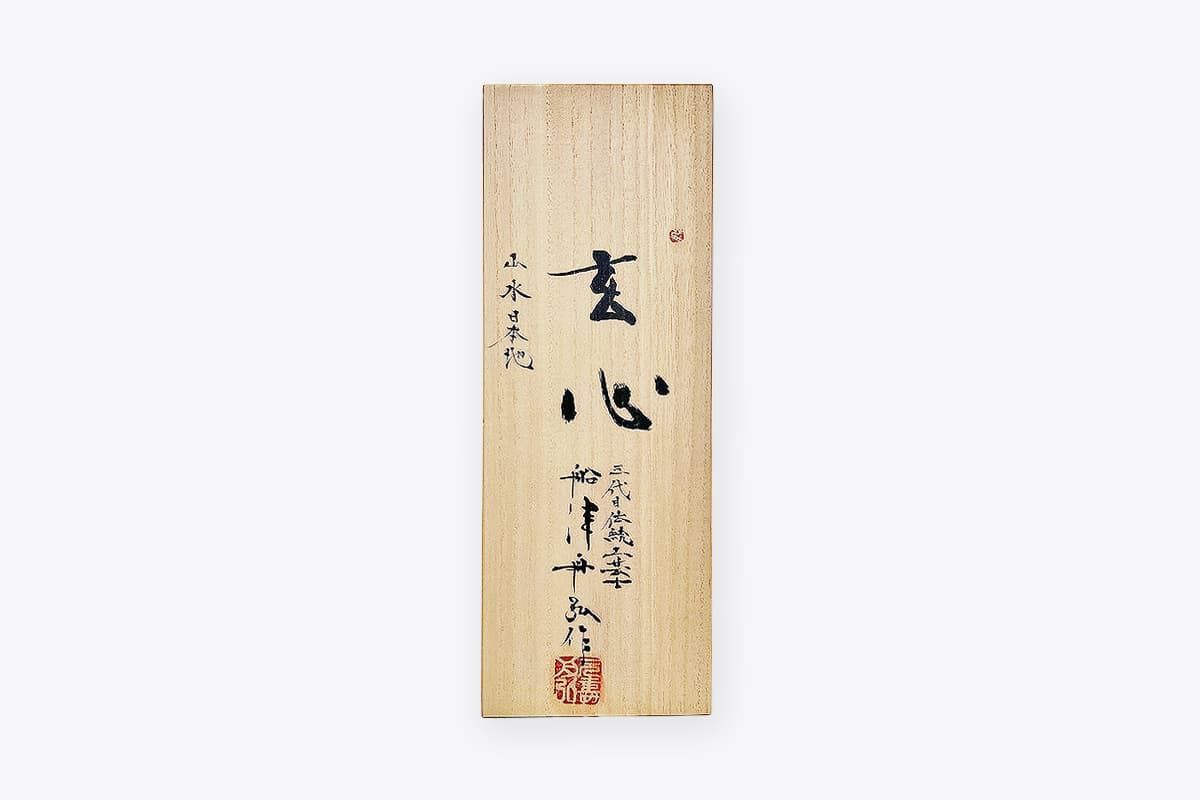 玄心
三代目伝統工芸士
船津舟弘作
山水日本地